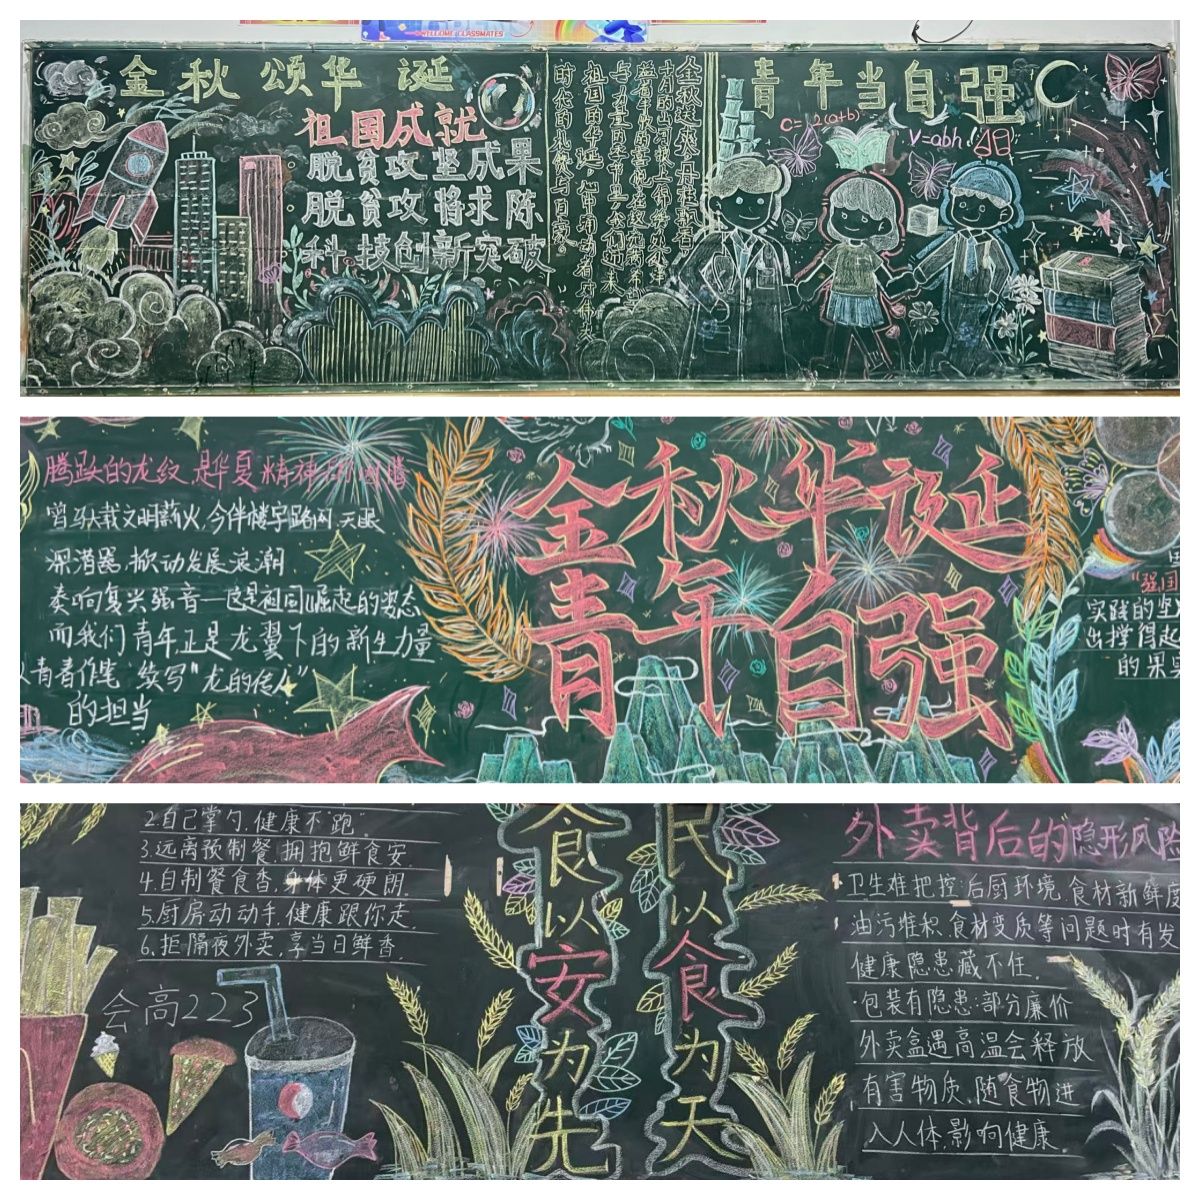 WELCOME CLASSMATES
金秋颂华诞
祖国成就
脱贫攻坚成果
脱贫攻将求陈
科技创新突破
青年当自强
C=2(a+b)
V=abh
金秋华诞
青年自强
腾跃的龙纹,是华夏精神的图腾
曾马大载文明薪火,今伴楼宇路网,天眼
深潜器,掀动发展浪潮
奏响复兴强音——这是祖国崛起的姿态
而我们青年,正是龙翼下的新生力量
续写"龙的传人"
的担当
"强国
实践的坚
出撑得起
的果实
2.自己掌勺,健康不"跑"。
3.远离预制餐,拥抱鲜食安.
4.自制餐食香,身体更硬朗.
5.厨房动动手,健康跟你走.
6.拒隔夜外卖,享当日鲜香.
会高223
民以食为天
食以安为先
外卖背后的"隐形风险
卫生难把控:后厨环境,食材新鲜度
油污堆积,食材变质等问题时有发
健康隐患藏不住.
·包装有隐患:部分廉价
外卖盒遇高温会释放
有害物质,随食物进
入人体,影响健康.